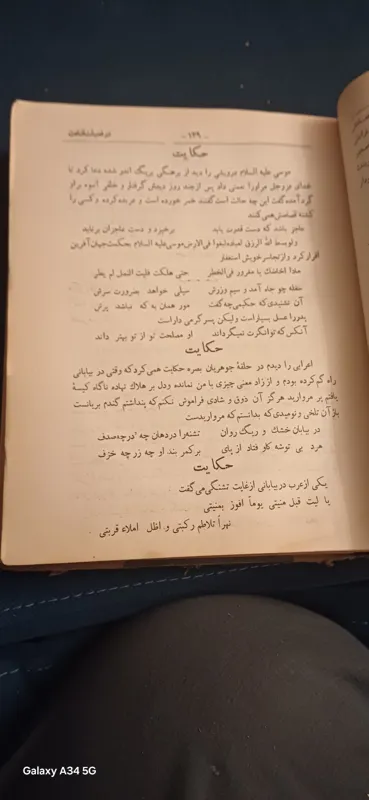 در فضیلت قناعت
- ۱۲۹ -
حکایت
موسی علیه السلام درویشی را دید از برهنگی بریگ اندر شده دعا کرد تا
خدای عزوجل مراورا نعمتی داد پس از چند روز دیدش گرفتار و خلقی انبوه براو
گرد آمده گفت این چه حالت است گفتند خمر خورده است و عربده کرده و کسی را
کشته قصاصش همی کنند
عاجز باشد که دست قدرت یابد برخیزد و دست عاجزان برتابد
ولوبسط الله الرزق لعباده لبغوا فی الارض موسی علیه السلام بحکمت جهان آفرین
اقرار کرد و از تجاسر خویش استغفار
ماذا اخاضک یا مغرور فی الخطر حتی هلکت فلیت النمل لم یطر
سفله چو جاه آمد و سیم وزرش سیلی خواهد بضرورت سرش
آن نشنیدی که حکیمی چه گفت مور همان به که نباشد پرش
پدر را عسل بسیار است ولیکن پسر گرمی دار است
آنکس که توانگرت نمیگرداند او مصلحت تو از تو بهتر داند
حکایت
اعرابی را دیدم در حلقهٔ جوهریان بصره حکایت همی کرد که وقتی در بیابانی
راه گم کرده بودم و از زاد معنی چیزی با من نمانده ودل بر هلاک نهاده ناگاه کیسهٔ
یافتم پر مروارید هرگز آن ذوق و شادی فراموش نکنم که پنداشتم گندم بریانست
باز آن تلخی و نومیدی که بدانستم که مرواریدست
در بیابان خشک و ریگ روان تشنه را در دهان چه در چه صدف
مرد بی توشه کاو فتاد از پای بر کمر بند او چه زر چه خزف
حکایت
یکی از عرب در بیابانی از غایت تشنگی می گفت
یا لیت قبل منیتی یوماً افوز بمنیتی
نهراً تلاطم رکبتی و اظل املاء قربتی
Galaxy A34 5G